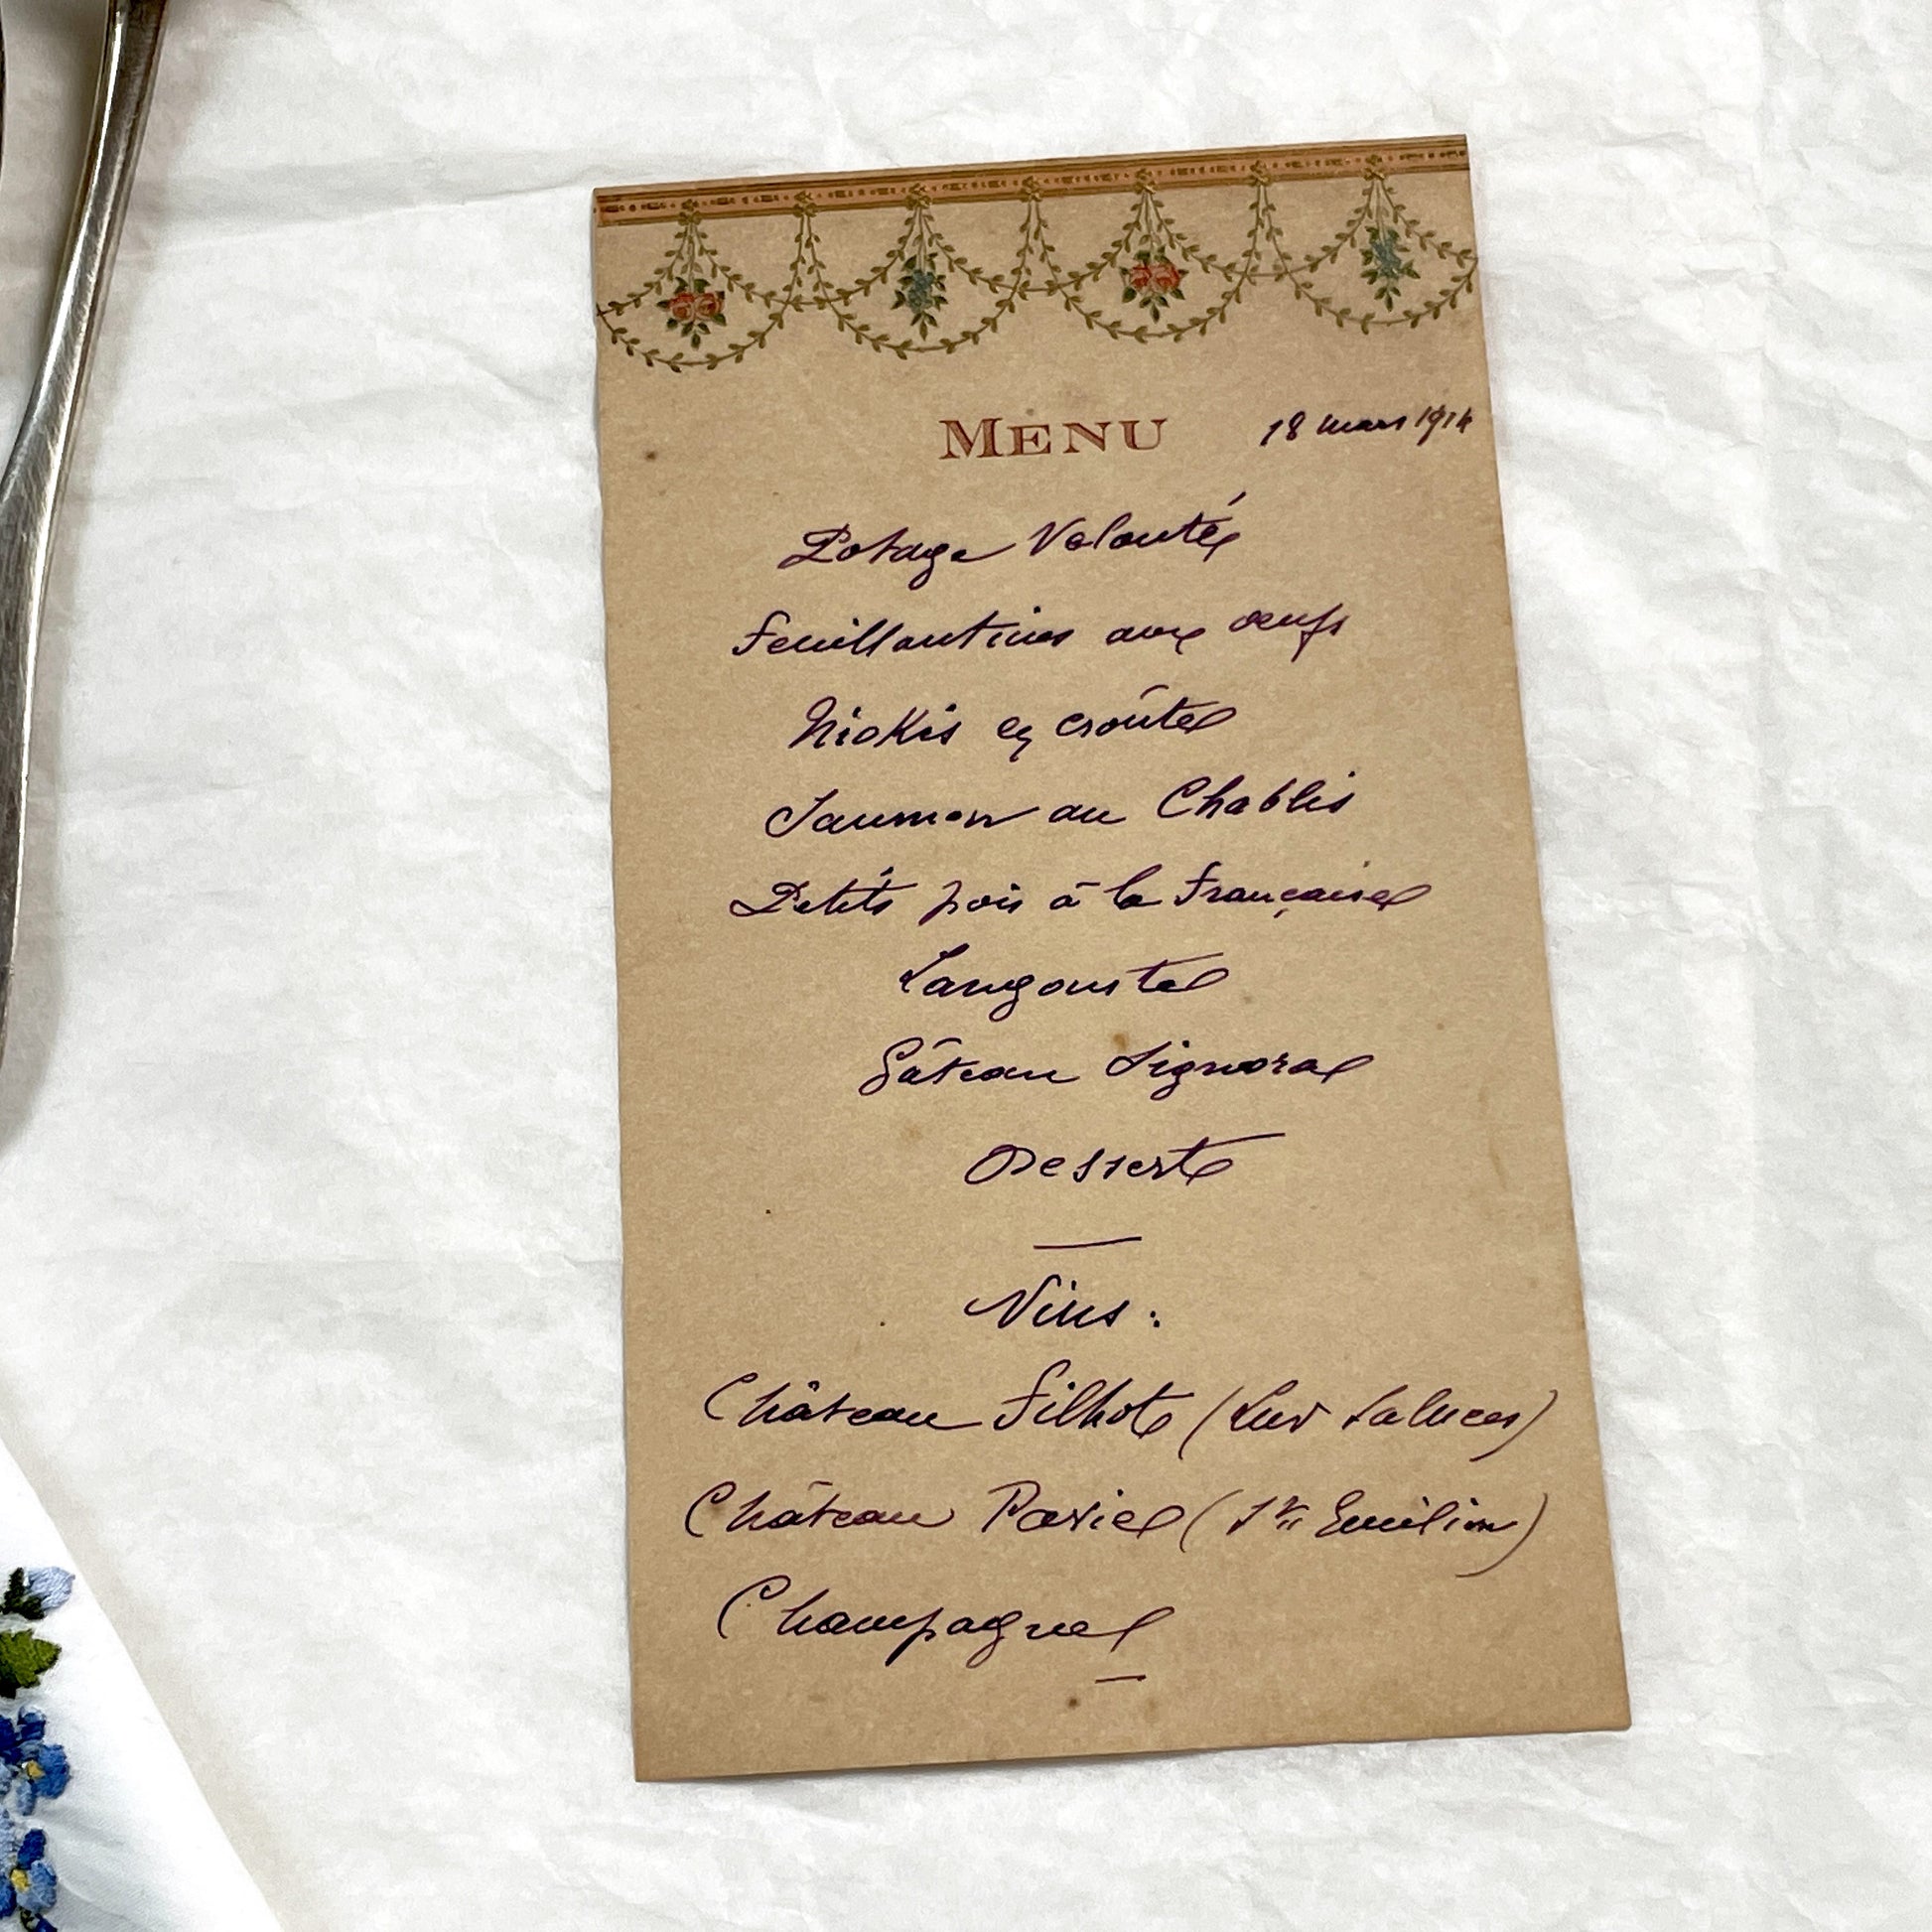 MENU 18 mars 1914
Potage Velouté
Feuillantines aux œufs
Niokis en croûte
Saumon au Chablis
Petits pois à la Française
Langouste
Gâteau Signora
Dessert
Vins :
Château Filhot (Lur Saluces)
Château Pavie (St Emilion)
Champagne